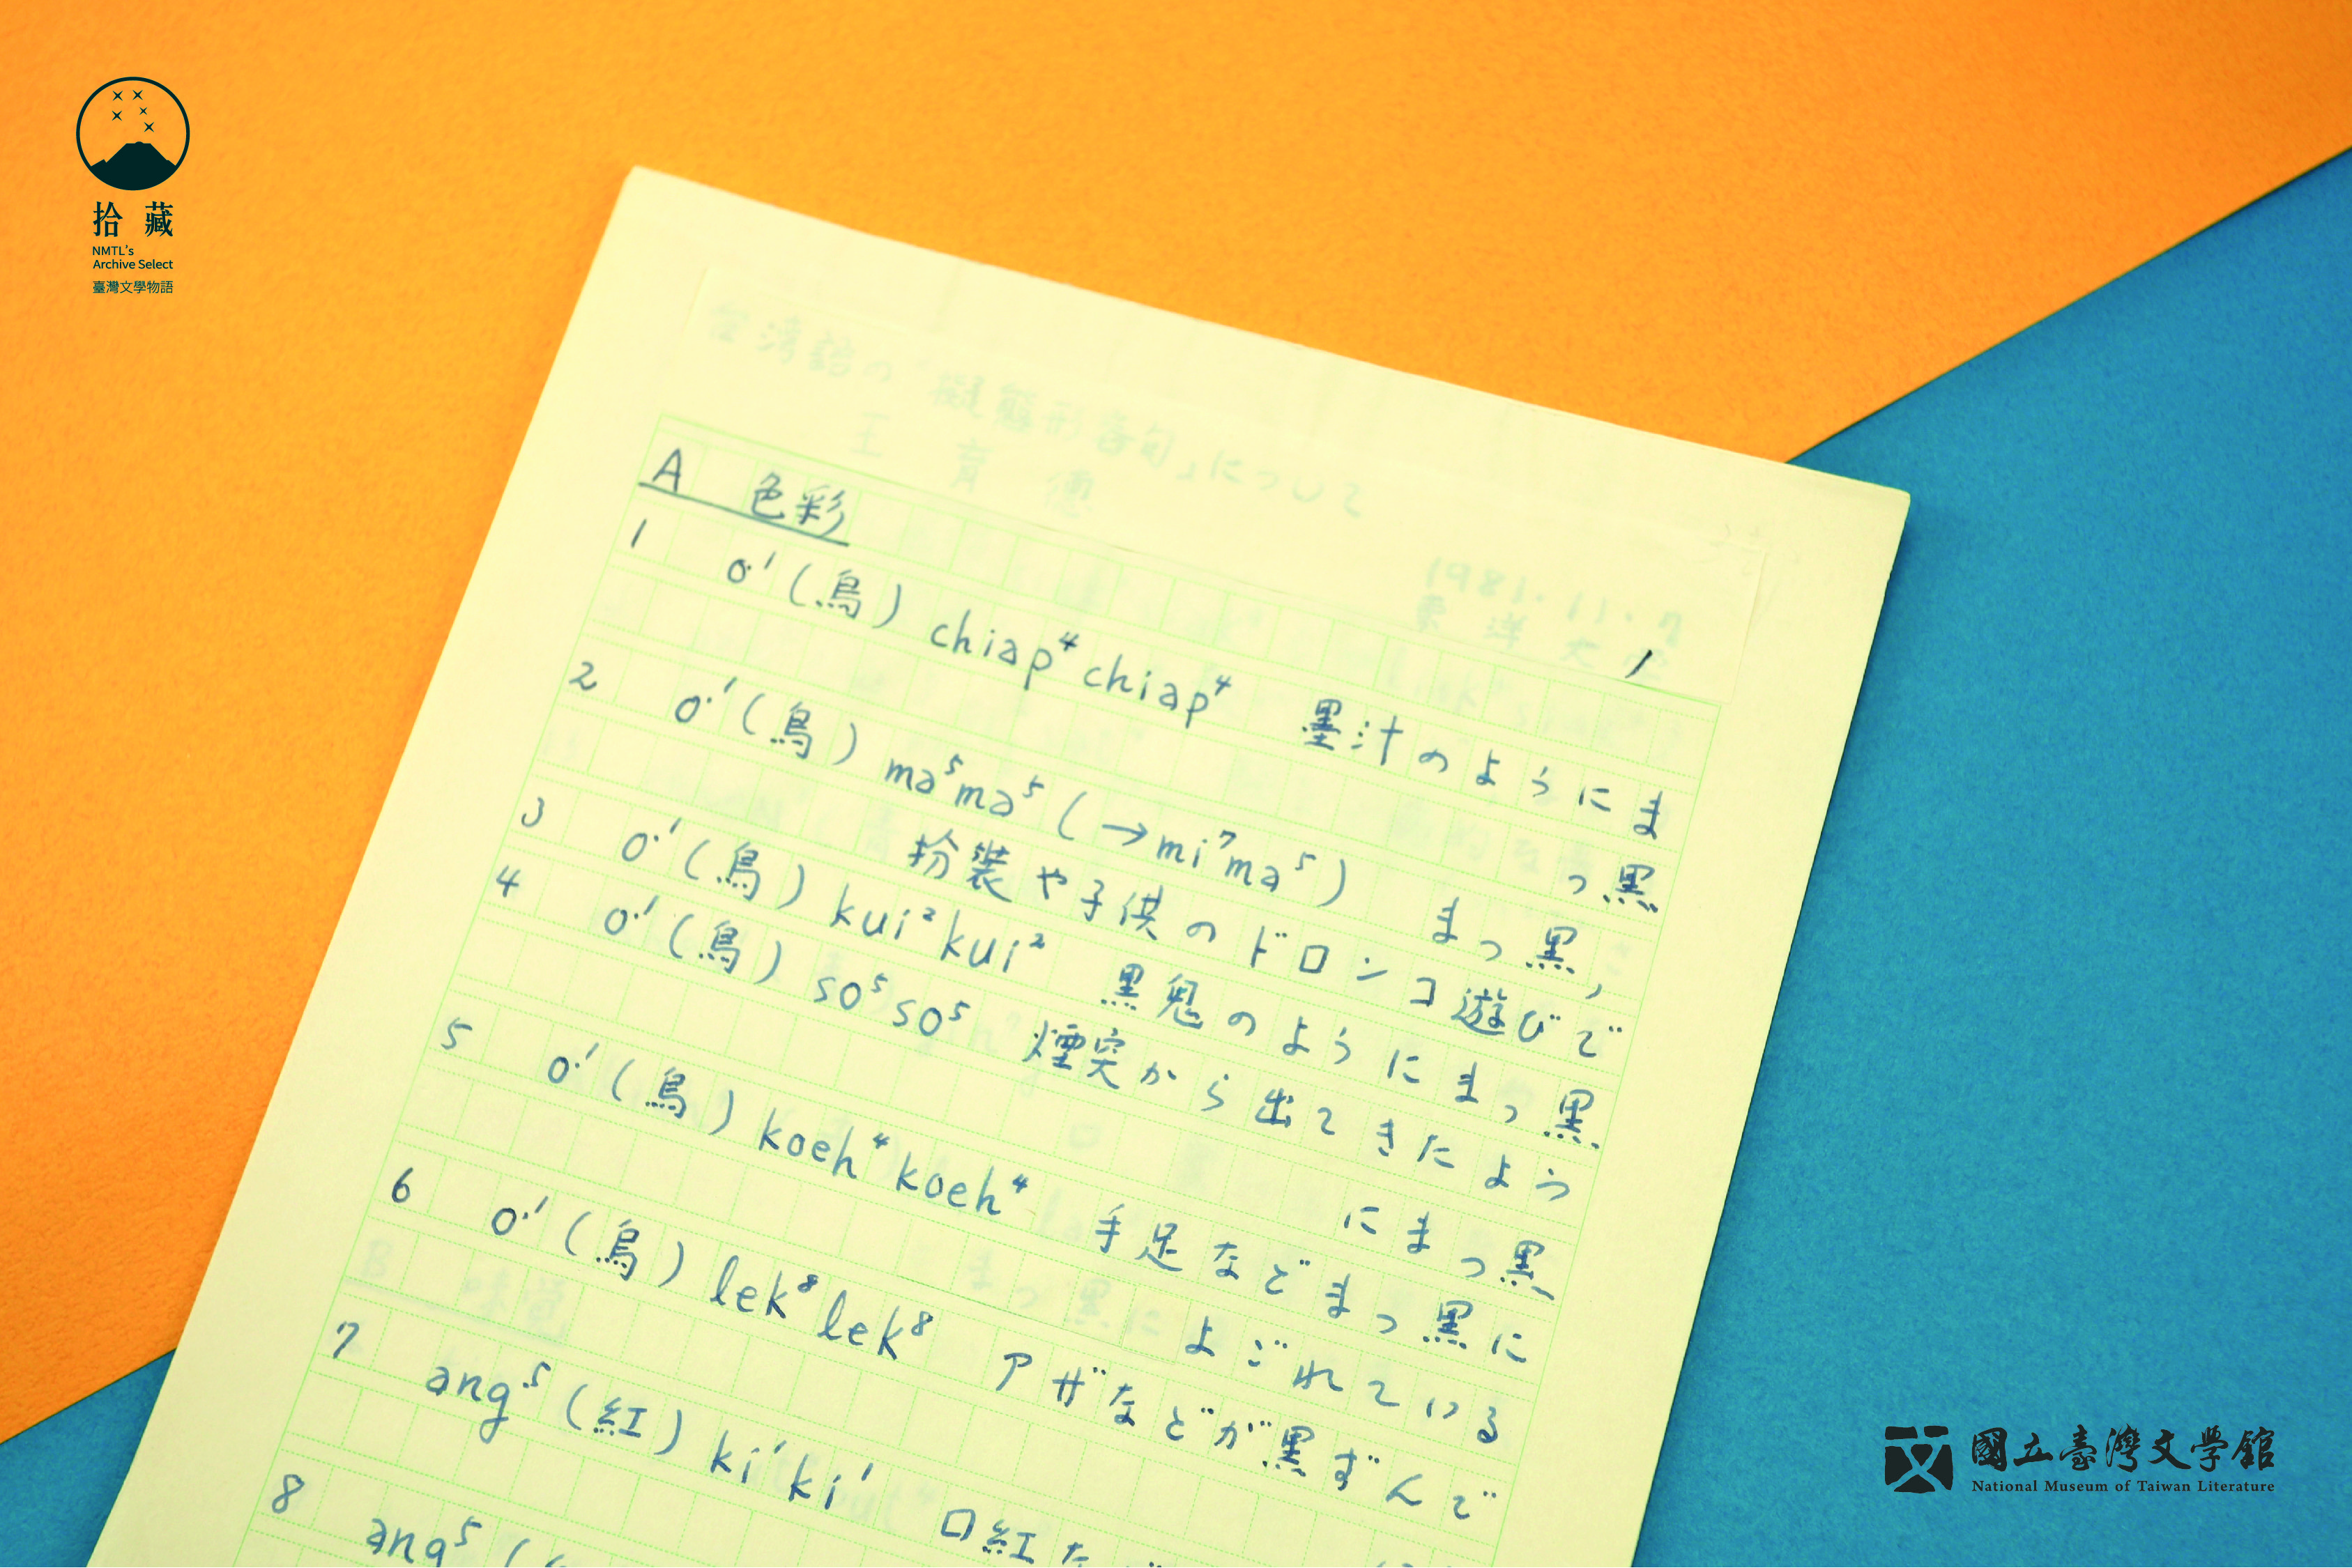 拾藏
NMTL's
Archive Select
臺灣文學物語
台湾語の「擬態形容句」について
王育德
1981.11.7
東洋大
1
A 色彩
1 o·¹(烏)chiap⁴chiap⁴ 墨汁のようにま
っ黒
2 o·¹(烏)ma⁵ma⁵(→mi⁷ma⁵) まっ黒,
扮裝や子供のドロンコ遊びで
3 o·¹(烏)kui²kui² 黒鬼のようにまっ黒
4 o·¹(烏)so⁵so⁵ 煙突から出てきたよう
にまっ黒
5 o·¹(烏)koeh⁴koeh⁴ 手足などまっ黒に
よごれている
6 o·¹(烏)lek⁸lek⁸ アザなどが黒ずんで
7 ang⁵(紅)ki¹ki¹ 口紅な
8 ang⁵(
B 味覚
國立臺灣文學館
National Museum of Taiwan Literature